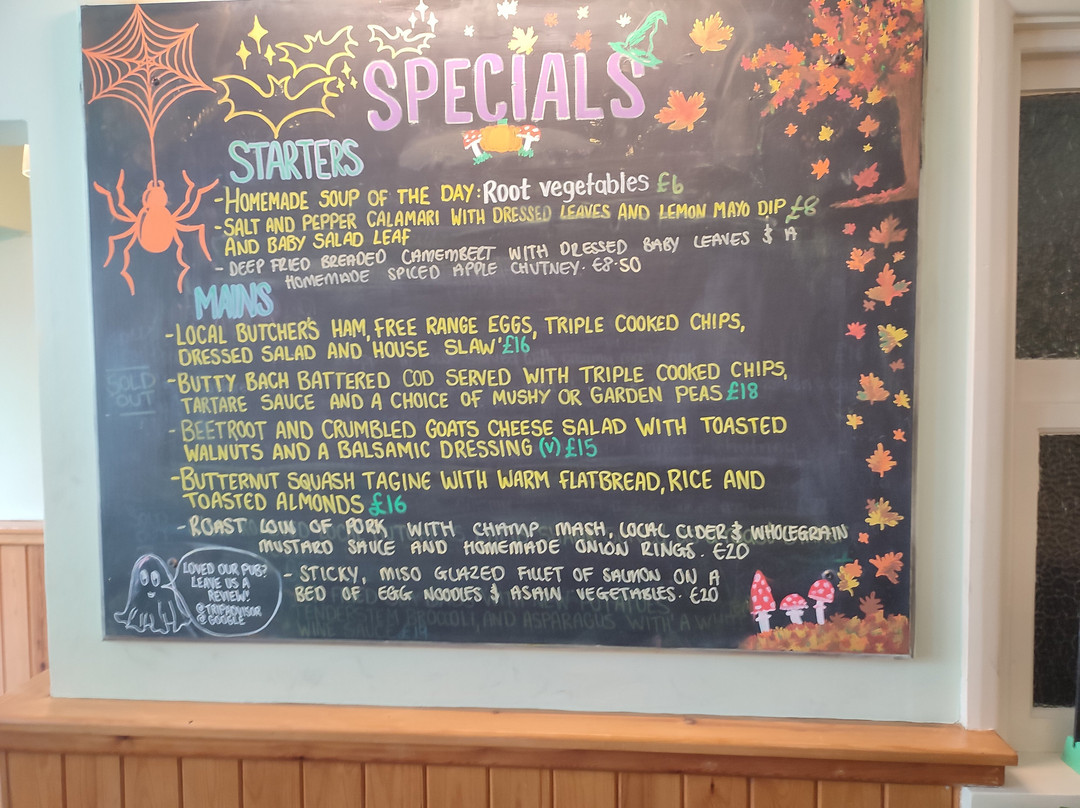 SPECIALS
STARTERS
-HOMEMADE SOUP OF THE DAY: Root vegetables £6
-SALT AND PEPPER CALAMARI WITH DRESSED LEAVES AND LEMON MAYO DIP £8
AND BABY SALAD LEAF
- DEEP FRIED BREADED CAMEMBERT WITH DRESSED BABY LEAVES & A
HOMEMADE SPICED APPLE CHUTNEY. £8.50
MAINS
-LOCAL BUTCHER'S HAM, FREE RANGE EGGS, TRIPLE COOKED CHIPS,
DRESSED SALAD AND HOUSE SLAW' £16
SOLD
OUT
-BUTTY BACH BATTERED COD SERVED WITH TRIPLE COOKED CHIPS,
TARTARE SAUCE AND A CHOICE OF MUSHY OR GARDEN PEAS £18
- BEETROOT AND CRUMBLED GOATS CHEESE SALAD WITH TOASTED
WALNUTS AND A BALSAMIC DRESSING (V) £15
-BUTTERNUT SQUASH TAGINE WITH WARM FLATBREAD, RICE AND
TOASTED ALMONDS £16
- ROAST LOIN OF PORK WITH CHAMP MASH, LOCAL CIDER & WHOLEGRAIN
MUSTARD SAUCE AND HOMEMADE ONION RINGS. £20
- STICKY, MISO GLAZED FILLET OF SALMON ON A
BED OF EGG NOODLES & ASAIN VEGETABLES. £20
POTATOES
BROCCOLI, AND ASPARAGUS WITH A
WINE
LOVED OUR PUB?
LEAVE US A
REVIEW!
@TRIPADVISOR
@GOOGLE